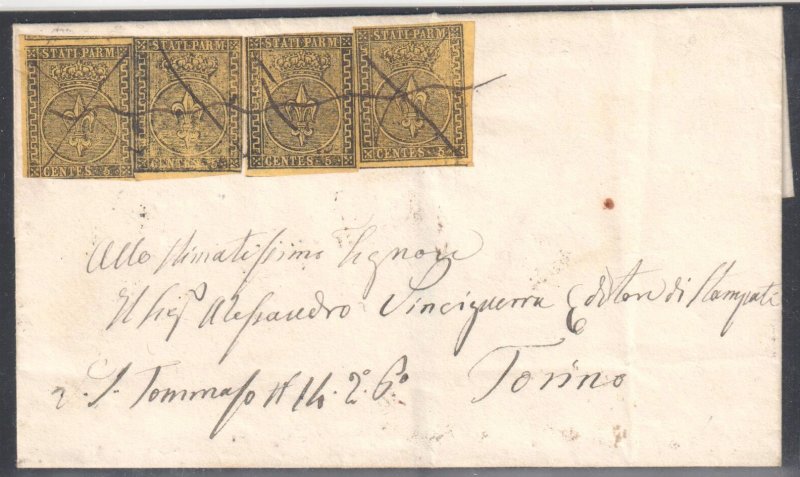 STATI PARM.
CENTES. 5
STATI PARM.
CENTES. 5
STATI PARM.
CENTES. 5
STATI PARM.
CENTES. 5
Allo Stimatissimo Signore
Il Sigr Alessandro Vinciguerra Editore di Stampati
S. Tommaso N 14. 2º Pº Torino